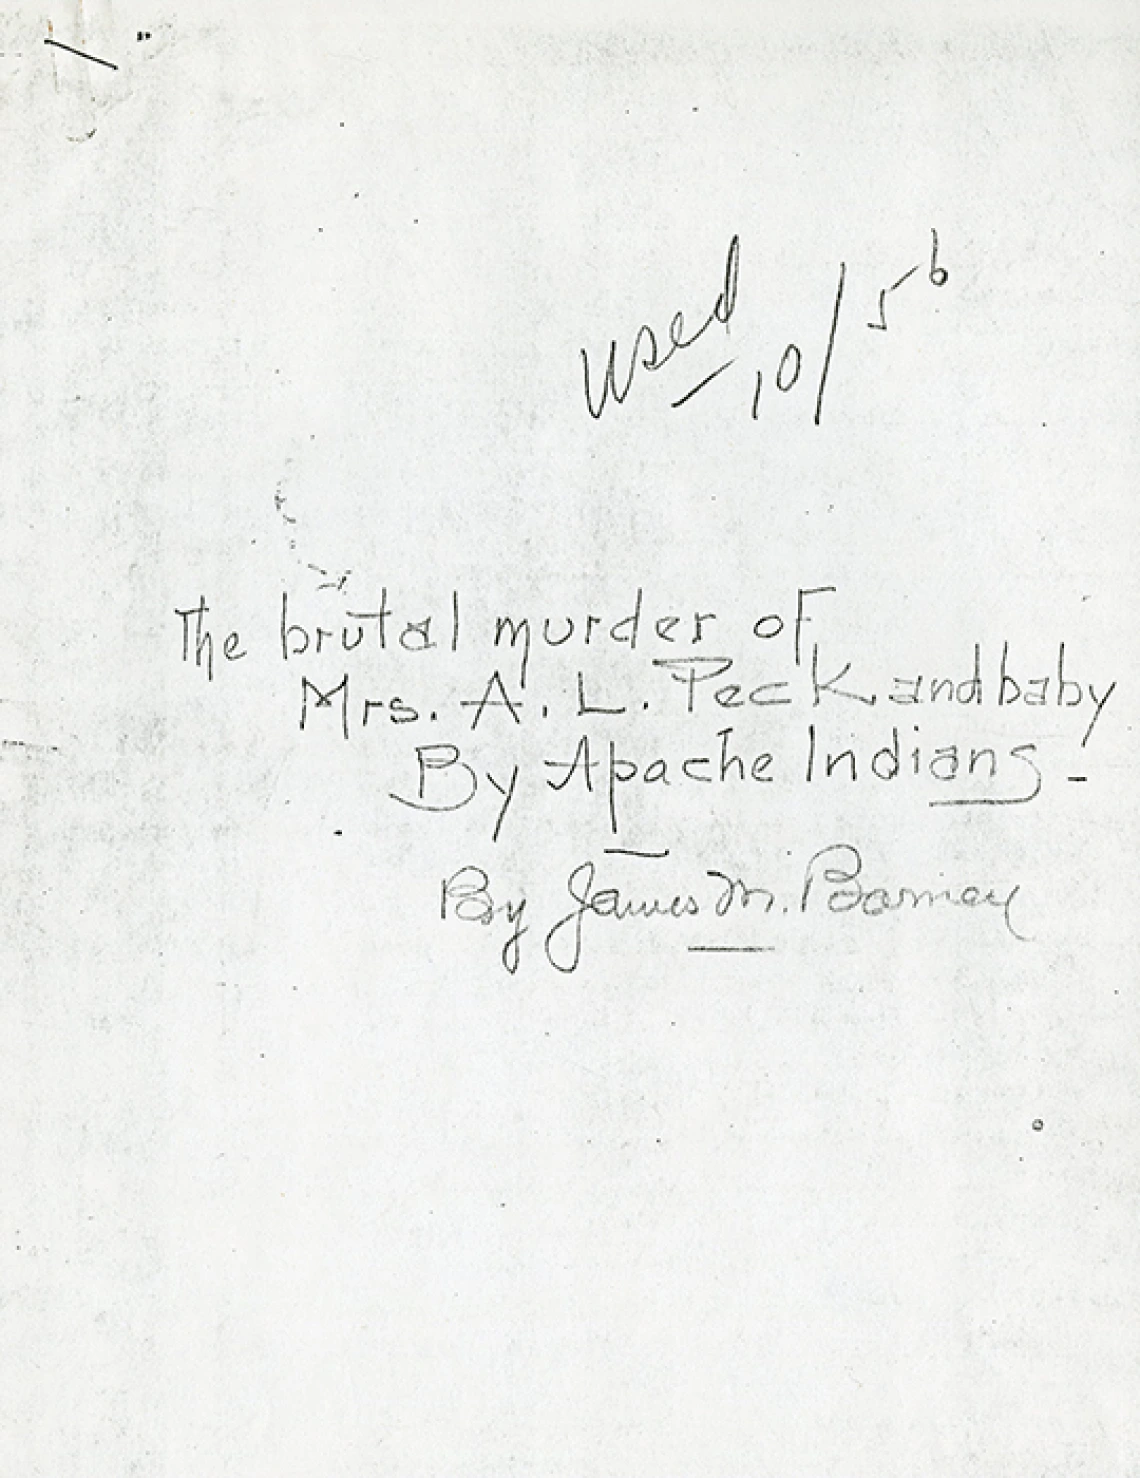 used 10/56
The brutal murder of
Mrs. A. L. Peck and baby
By Apache Indians -
By James M. Barney